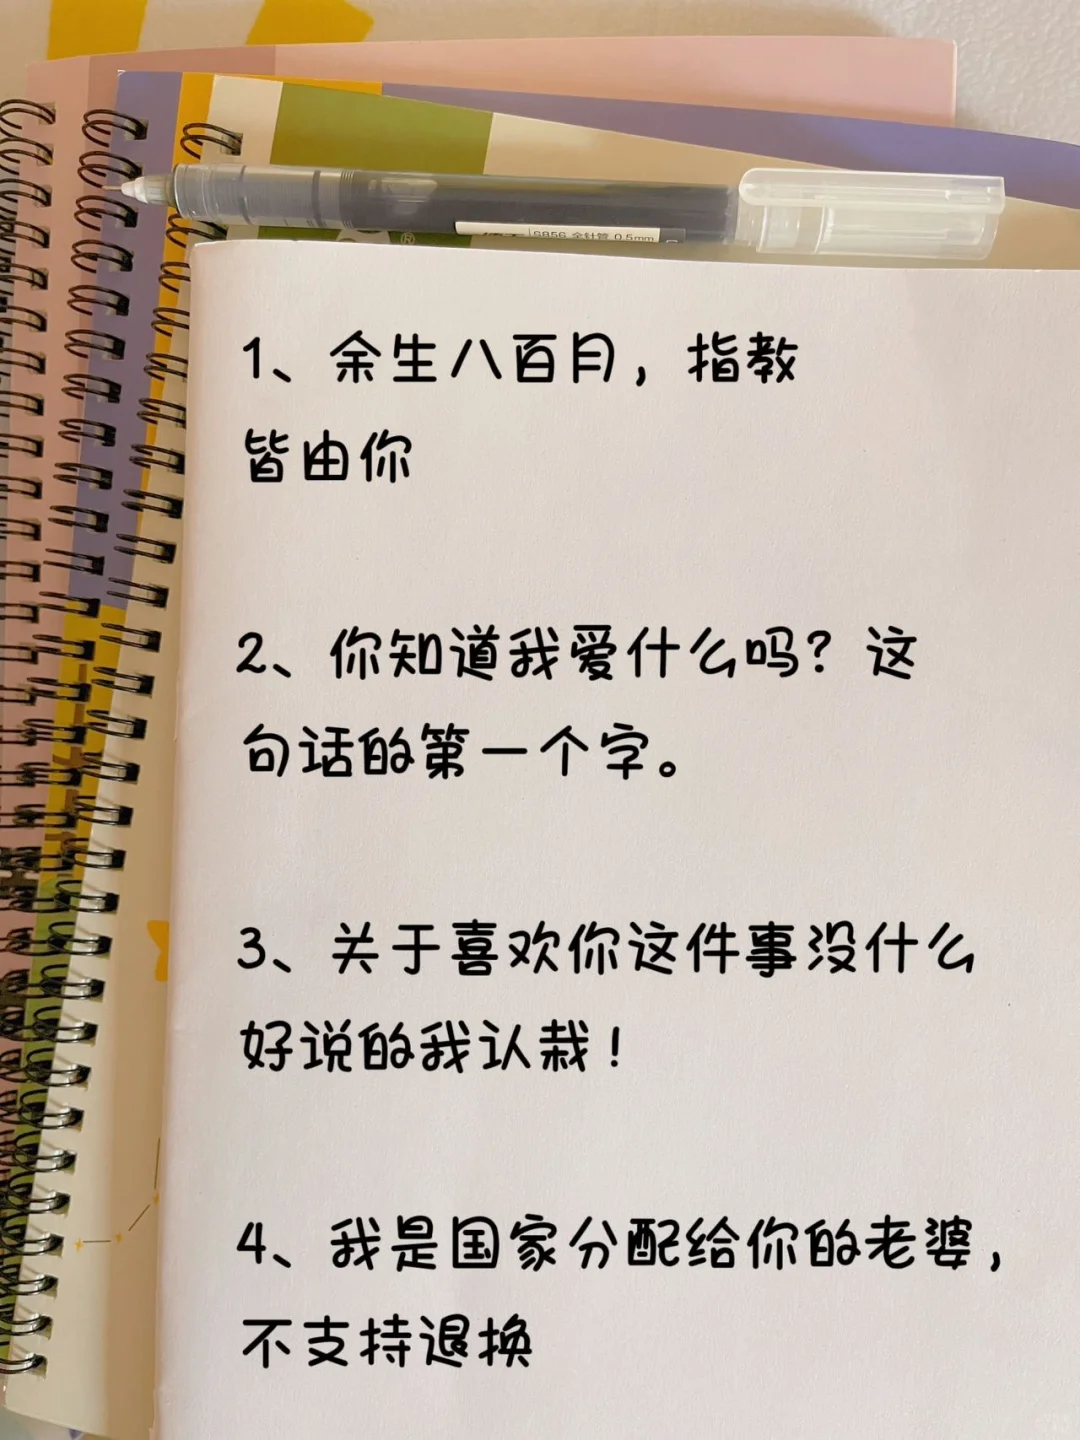 ®
S856 全针管 0.5mm
1、余生八百月，指教
皆由你
2、你知道我爱什么吗？这
句话的第一个字。
3、关于喜欢你这件事没什么
好说的我认栽！
4、我是国家分配给你的老婆，
不支持退换